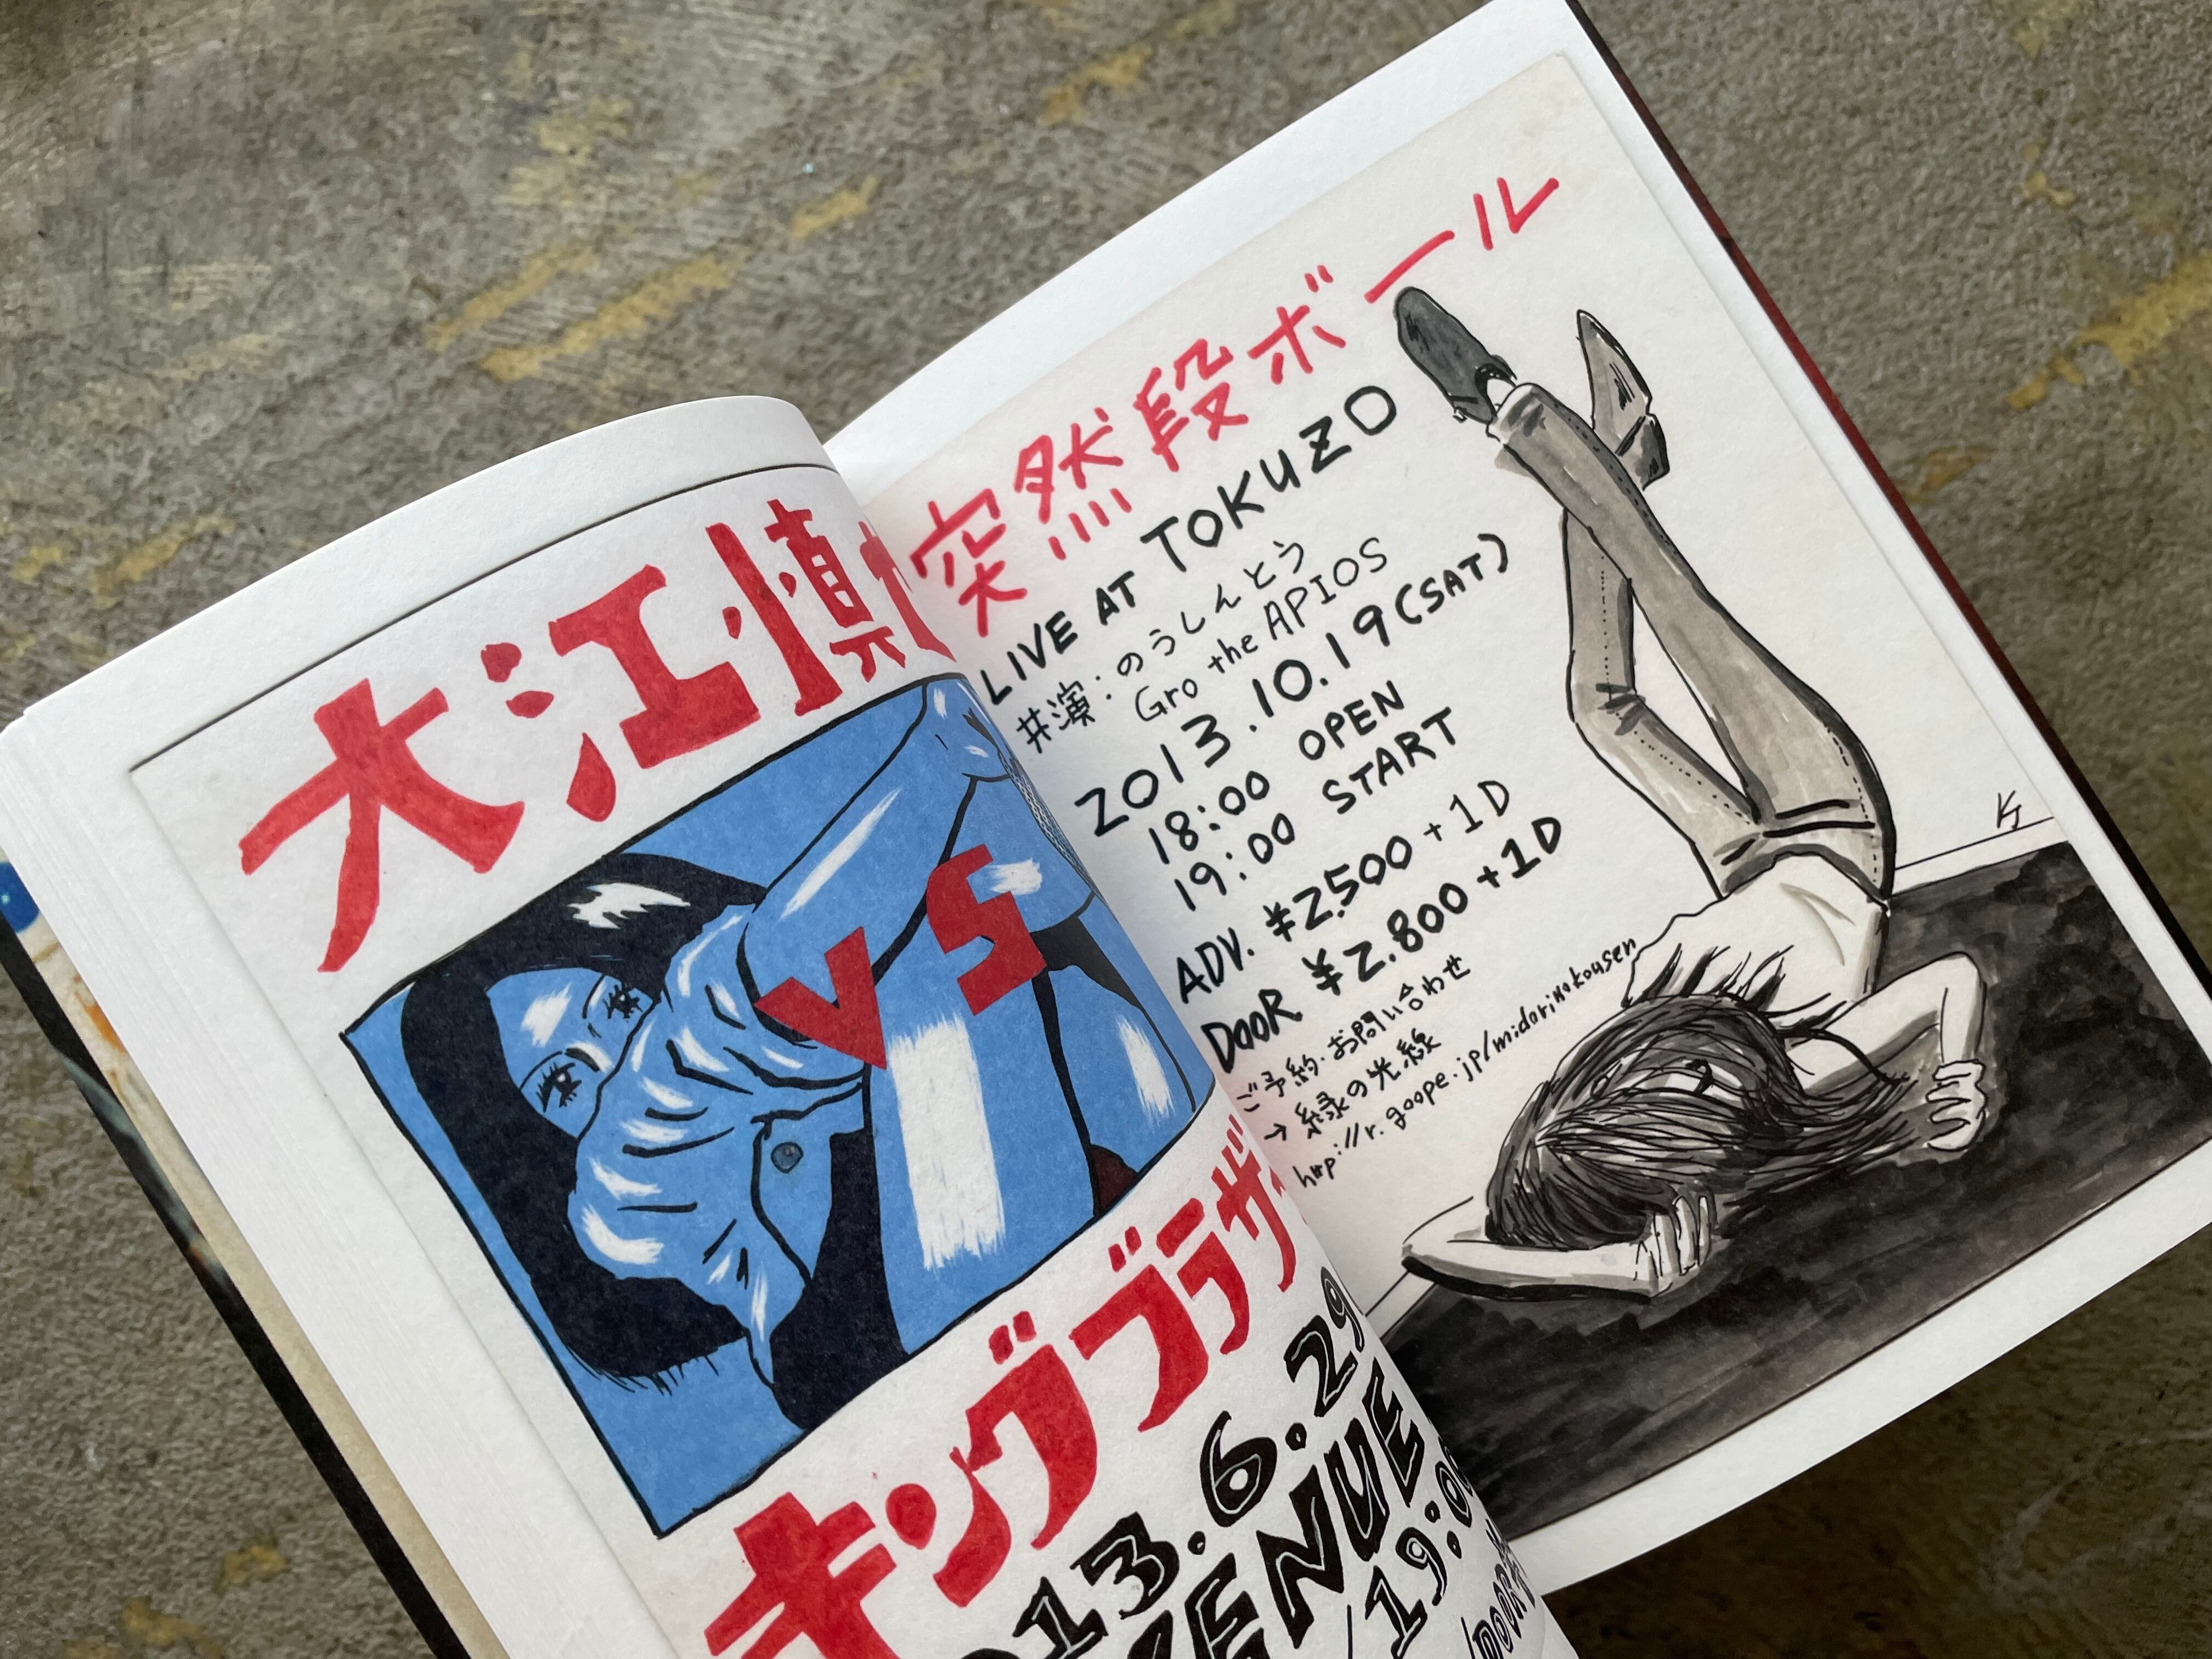 大江慎
VS
キングブラザ
13.6.29
ENUE
/19:00
/DOOR
突然段ボール
LIVE AT TOKUZO
共演:のうしんとう
Gro the APIOS
2013.10.19(SAT)
18:00 OPEN
19:00 START
ADV. ¥2,500+1D
DOOR ¥2.800+1D
ご予約・お問い合わせ
→緑の光線
http://r.goope.jp/midorinokousen
KJ